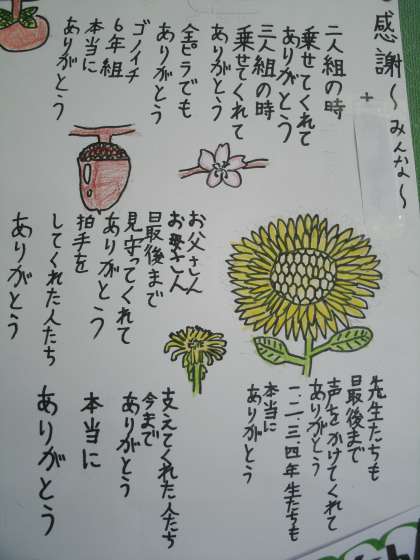 感謝〜みんな〜
+
二人組の時
乗せてくれて
ありがとう
三人組の時
乗せてくれて
ありがとう
全ピラでも
ありがとう
ゴノイチ
6年組
本当に
ありがとう
お父さん
お母さん
最後まで
見守ってくれて
ありがとう
拍手を
してくれた人たち
ありがとう
先生たちも
最後まで
声をかけてくれて
ありがとう
一、二、三、四年生たちも
本当に
ありがとう
支えてくれた人たち
今まで
ありがとう
本当に
ありがとう